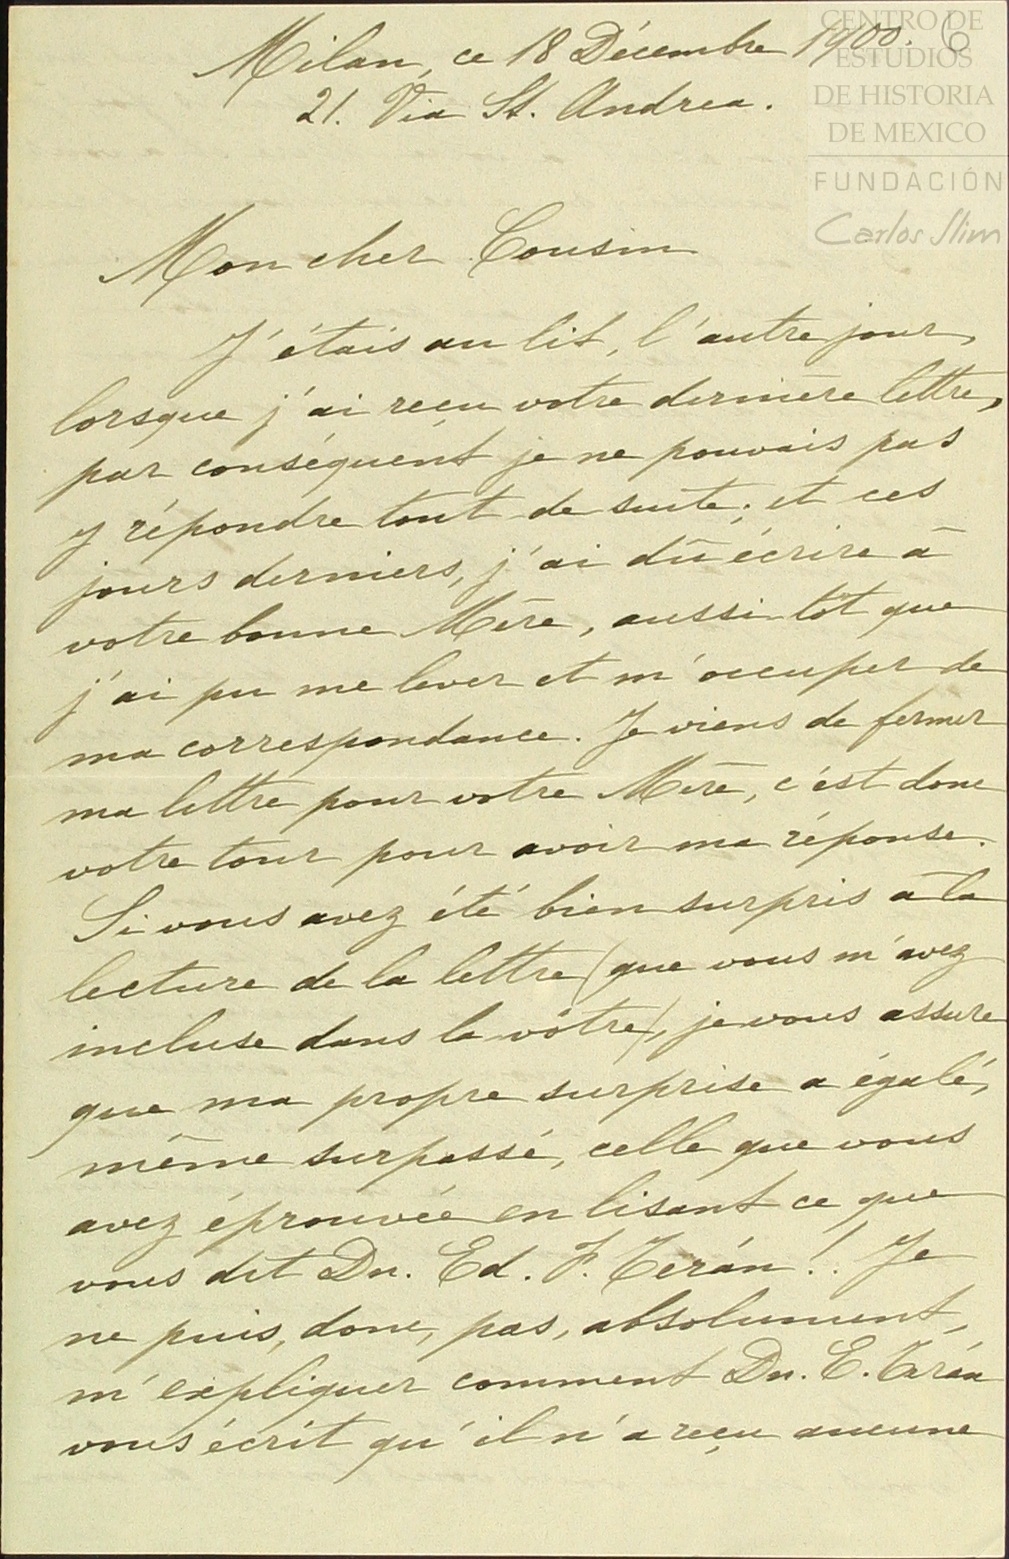 Milan, ce 18 Décembre 1900.
6
21. Via St. Andrea.
CENTRO DE
ESTUDIOS
DE HISTORIA
DE MEXICO
FUNDACIÓN
Carlos Slim
Mon cher Cousin
J'étais au lit, l'autre jour,
lorsque j'ai reçu votre dernière lettre,
par conséquent je ne pouvais pas
y répondre tout de suite; et ces
jours derniers, j'ai dû écrire à
votre bonne Mère, aussi tôt que
j'ai pu me lever et m'occuper de
ma correspondance. Je viens de fermer
ma lettre pour votre Mère, c'est donc
votre tour pour avoir ma réponse.
Si vous avez été bien surpris à la
lecture de la lettre (que vous m'avez
incluse dans la vôtre), je vous assure
que ma propre surprise a égalé,
même surpassé, celle que vous
avez éprouvée en lisant ce que
vous dit Dn. Ed. F. Terán!. Je
ne puis, donc, pas, absolument,
m'expliquer comment Dn. E. Terán
vous écrit qu'il n'a reçu aucune